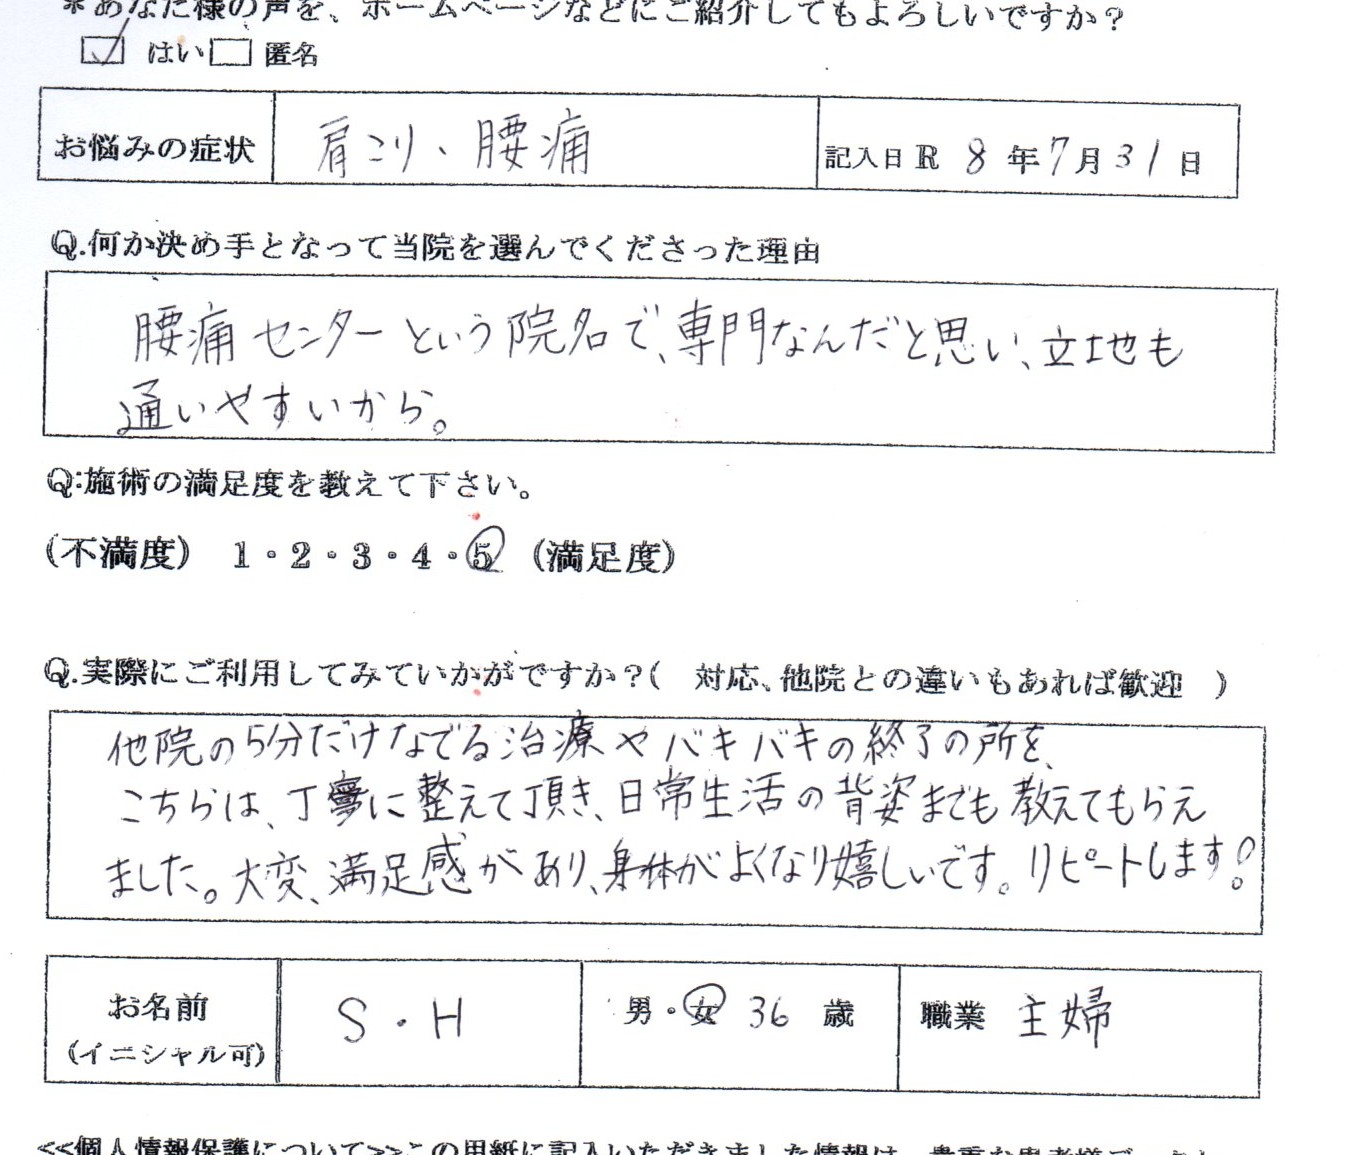 *あなた様の声を、ホームページなどにご紹介してもよろしいですか？
☑ はい □ 匿名
お悩みの症状 肩こり、腰痛 記入日 R 8 年 7 月 31 日
Q.何か決め手となって当院を選んでくださった理由
腰痛センターという院名で、専門なんだと思い、立地も
通いやすいから。
Q:施術の満足度を教えて下さい。
(不満度) 1・2・3・4・5 (満足度)
Q.実際にご利用してみていかがですか？( 対応、他院との違いもあれば歓迎 )
他院の5分だけなでる治療やバキバキの終了の所を、
こちらは、丁寧に整えて頂き、日常生活の背姿までも教えてもらえ
ました。大変、満足感があり、身体がよくなり嬉しいです。リピートします!
お名前 S・H 男・女 36 歳 職業 主婦
(イニシャル可)
<<個人情報保護について>>この用紙に記入いただきました情報は、貴重な患者様データと